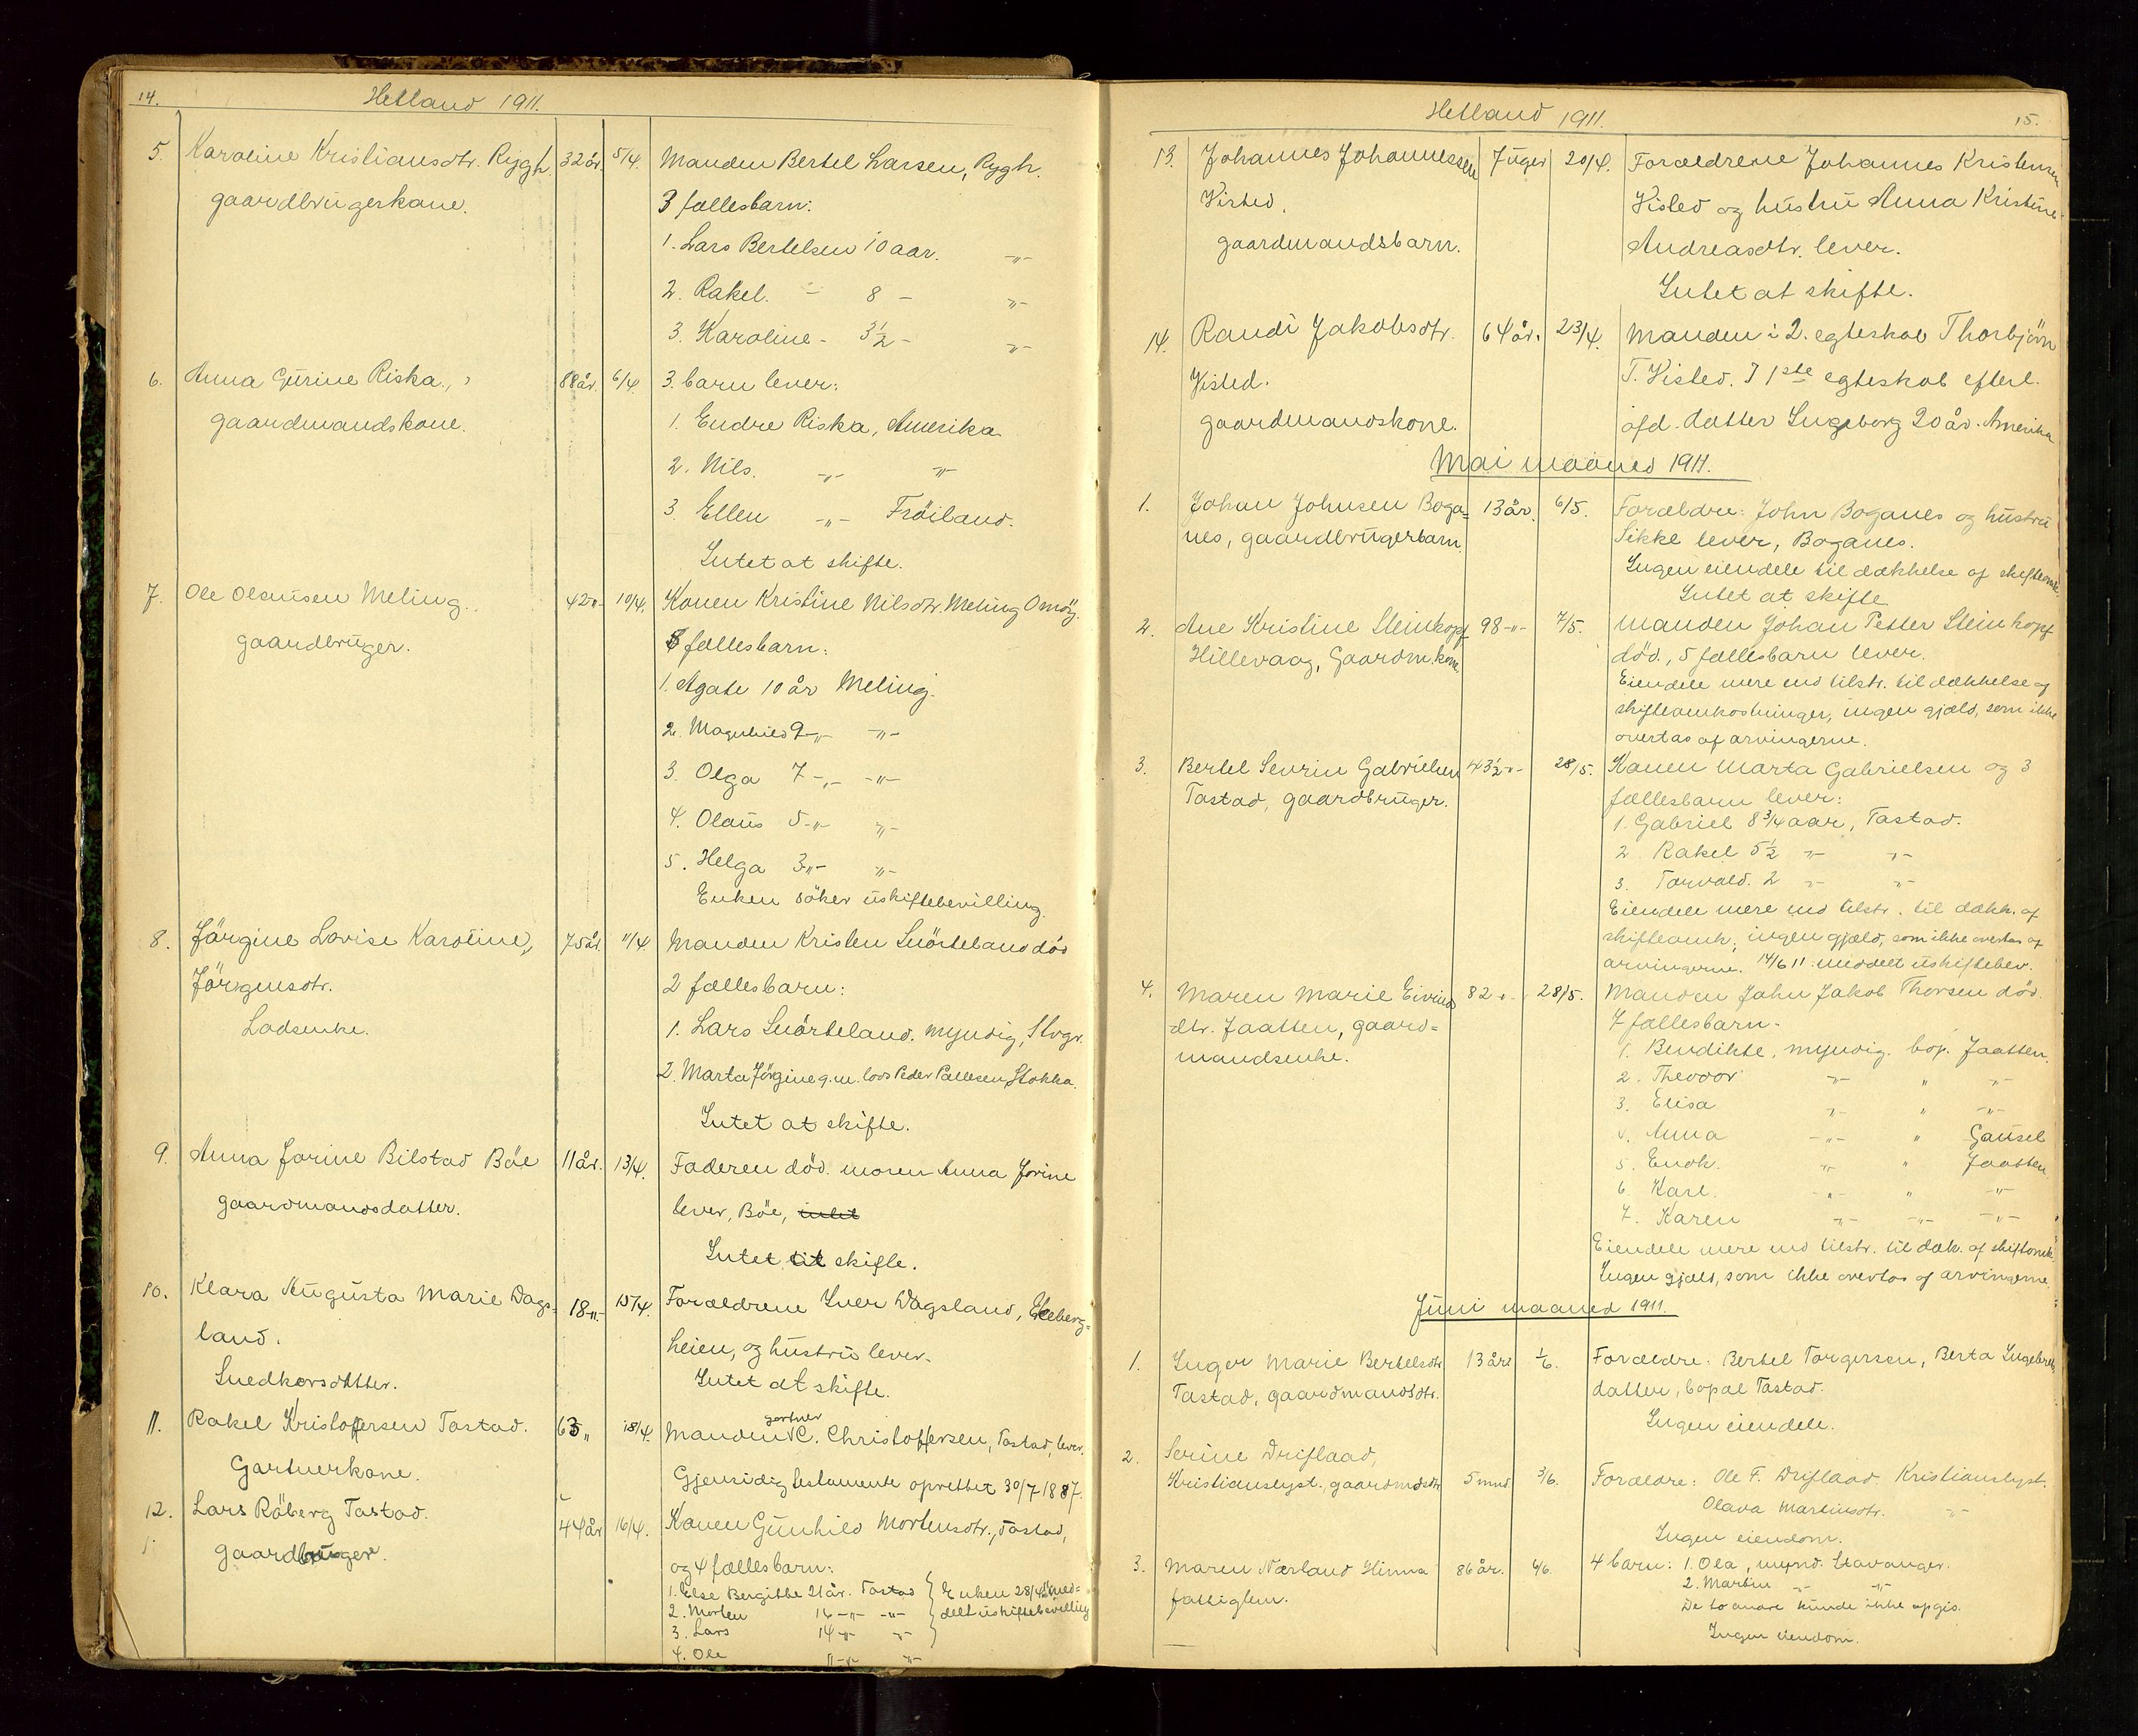 14.
Hetland 1911.
5. Karoline Kristiansdtr. Rygh. 32 år. 5/4 Manden Bertel Larsen, Rygh.
gaardbrugerkone. 3 fællesbarn:
1. Lars Bertelsen 10 aar. -"-
2. Rakel. - 8 - "-
3. Karoline - 3½ - "-
6. Anna Gurine Riska., 88 år. 6/4 3. barn lever:
gaardmandskone. 1. Endre Riska, Amerika
2. Nils. -"- "-
3. Ellen -"- Fröiland.
Intet at skifte.
7. Ole Olausen Meling. 42-"- 10/4. Konen Kristine Nilsdtr. Meling
gaardbruger. 5 fællesbarn:
1. Agate 10 år Meling.
2. Magnhild 9-"- -"-
3. Olga 7-"- -"-
4. Olaus 5-"- -"-
5. Helga 3-"- -"-
Enken söker uskiftebevilling.
8. Jörgine Lovise Karoline, 75 år. 11/4 Manden Kristen Snörteland död
Jörgensdtr. 2 fællesbarn:
Lodsenke. 1. Lars Snörteland. myndig, Stvgr.
2. Marta Jörgine g.m. lods Peder Pallesen Stokka.
Intet at skifte.
9. Anna Jorine Bilstad Böe 11 år. 13/4. Faderen död. moren Anna Jorine
gaardmandsdatter. lever, Böe, intet
Intet til skifte.
10. Klara Augusta Marie Dags= 18-"- 15/4. Forældrene Iver Dagsland, Ekeberg=
land. heien, og hustru lever.
Snedkersdatter. Intet at skifte.
11. Rakel Kristoffersen Tastad. 63 " 18/4. Manden gartner C. Christoffersen, Tastad, lever.
Gartnerkone. Gjensidig testamente oprettet 30/7 1887.
12. Lars Råberg Tastad. 44 år 16/4. Konen Gunhild Mortensdtr., Tastad,
gaardbruger. og 4 fællesbarn:
1. Else Bergitte 21 år. Tastad } Enken 28/4 med=
2. Morten 16-"- -"- } delt uskiftebevilling
3. Lars 14-"- -"- }
4. Ole 11-"- -"-
Hetland 1911.
15.
13. Johannes Johannessen 7 uger 20/4. Forældrene Johannes Kristensen
Visted. Visted og hustru Anna Kristine
gaardmandsbarn. Andreasdtr. lever.
Intet at skifte.
14. Randi Jakobsdtr. 64 år. 23/4. Manden i 2. egteskab Thorbjörn
Visted. T. Visted. I 1ste egteskab efterl.
gaardmandskone. afd. datter Ingeborg 20 år. Amerika
Mai maaned 1911.
1. Johan Johnsen Boga= 13 år. 6/5. Forældre: John Boganes og hustru
nes, gaardbrugerbarn. Sikke lever, Boganes.
Ingen eiendele til dækkelse af skifteomk.
Intet at skifte
2. Ane Kristine Steinkopf 98-"- 7/5. Manden Johan Petter Steinkopf
Hillevaag, Gaardm.kone. död., 5 fællesbarn lever.
Eiendele mere end tilstr. til dækkelse af
skifteomkostninger, ingen gjæld, som ikke
overtas af arvingerne.
3. Bertel Sevrin Gabrielsen 43½-"- 28/5. Konen Marta Gabrielsen og 3
Tastad, gaardbruger. fællesbarn lever:
1. Gabriel 8 3/4 aar, Tastad.
2. Rakel 5½ -"- -"-
3. Torvald. 2 -"- -"-
Eiendele mere end tilstr. til dækk. af
skifteomk., ingen gjæld, som ikke overtas af
arvingerne. 14/6 11. meddelt uskiftebev.
4. Maren Marie Eivinds 82-"- 28/5. Manden John Jakob Thorsen död.
dtr. Jaatten, gaard= 7 fællesbarn.
mandsenke. 1. Bendikte, myndig. bop. Jaatten.
2. Theodor -"- " -"-
3. Elisa -"- " -"-
4. Anna -"- " Gausel
5. Enok. -"- " Jaatten
6. Karl. -"- " -"-
7. Karen -"- -"- -"-
Eiendele mere end tilstr. til dæk. af skifteomk.
Ingen gjæld, som ikke overtas af arvingerne.
Juni maaned 1911.
1. Inger Marie Bertelsdtr. 13 år. 1/6. Forældre: Bertel Torgersen, Berta Ingebrets
Tastad, gaardmandsdtr. datter, bopæl Tastad.
Ingen eiendele.
2. Serine Driflaad,
Kristianslyst., gaardmdsdtr. 5 mnd. 3/6. Forældre: Ole F. Driflaad. Kristianslyst.
Olava Martinsdtr. -"-
Ingen eiendom.
3. Maren Nærland Hinna 86 år. 4/6. 4 barn: 1. Ola, mynd. Stavanger.
fattiglem. 2. Martin -"- -"-
De to andre kunde ikke opgis.
Ingen eiendom.